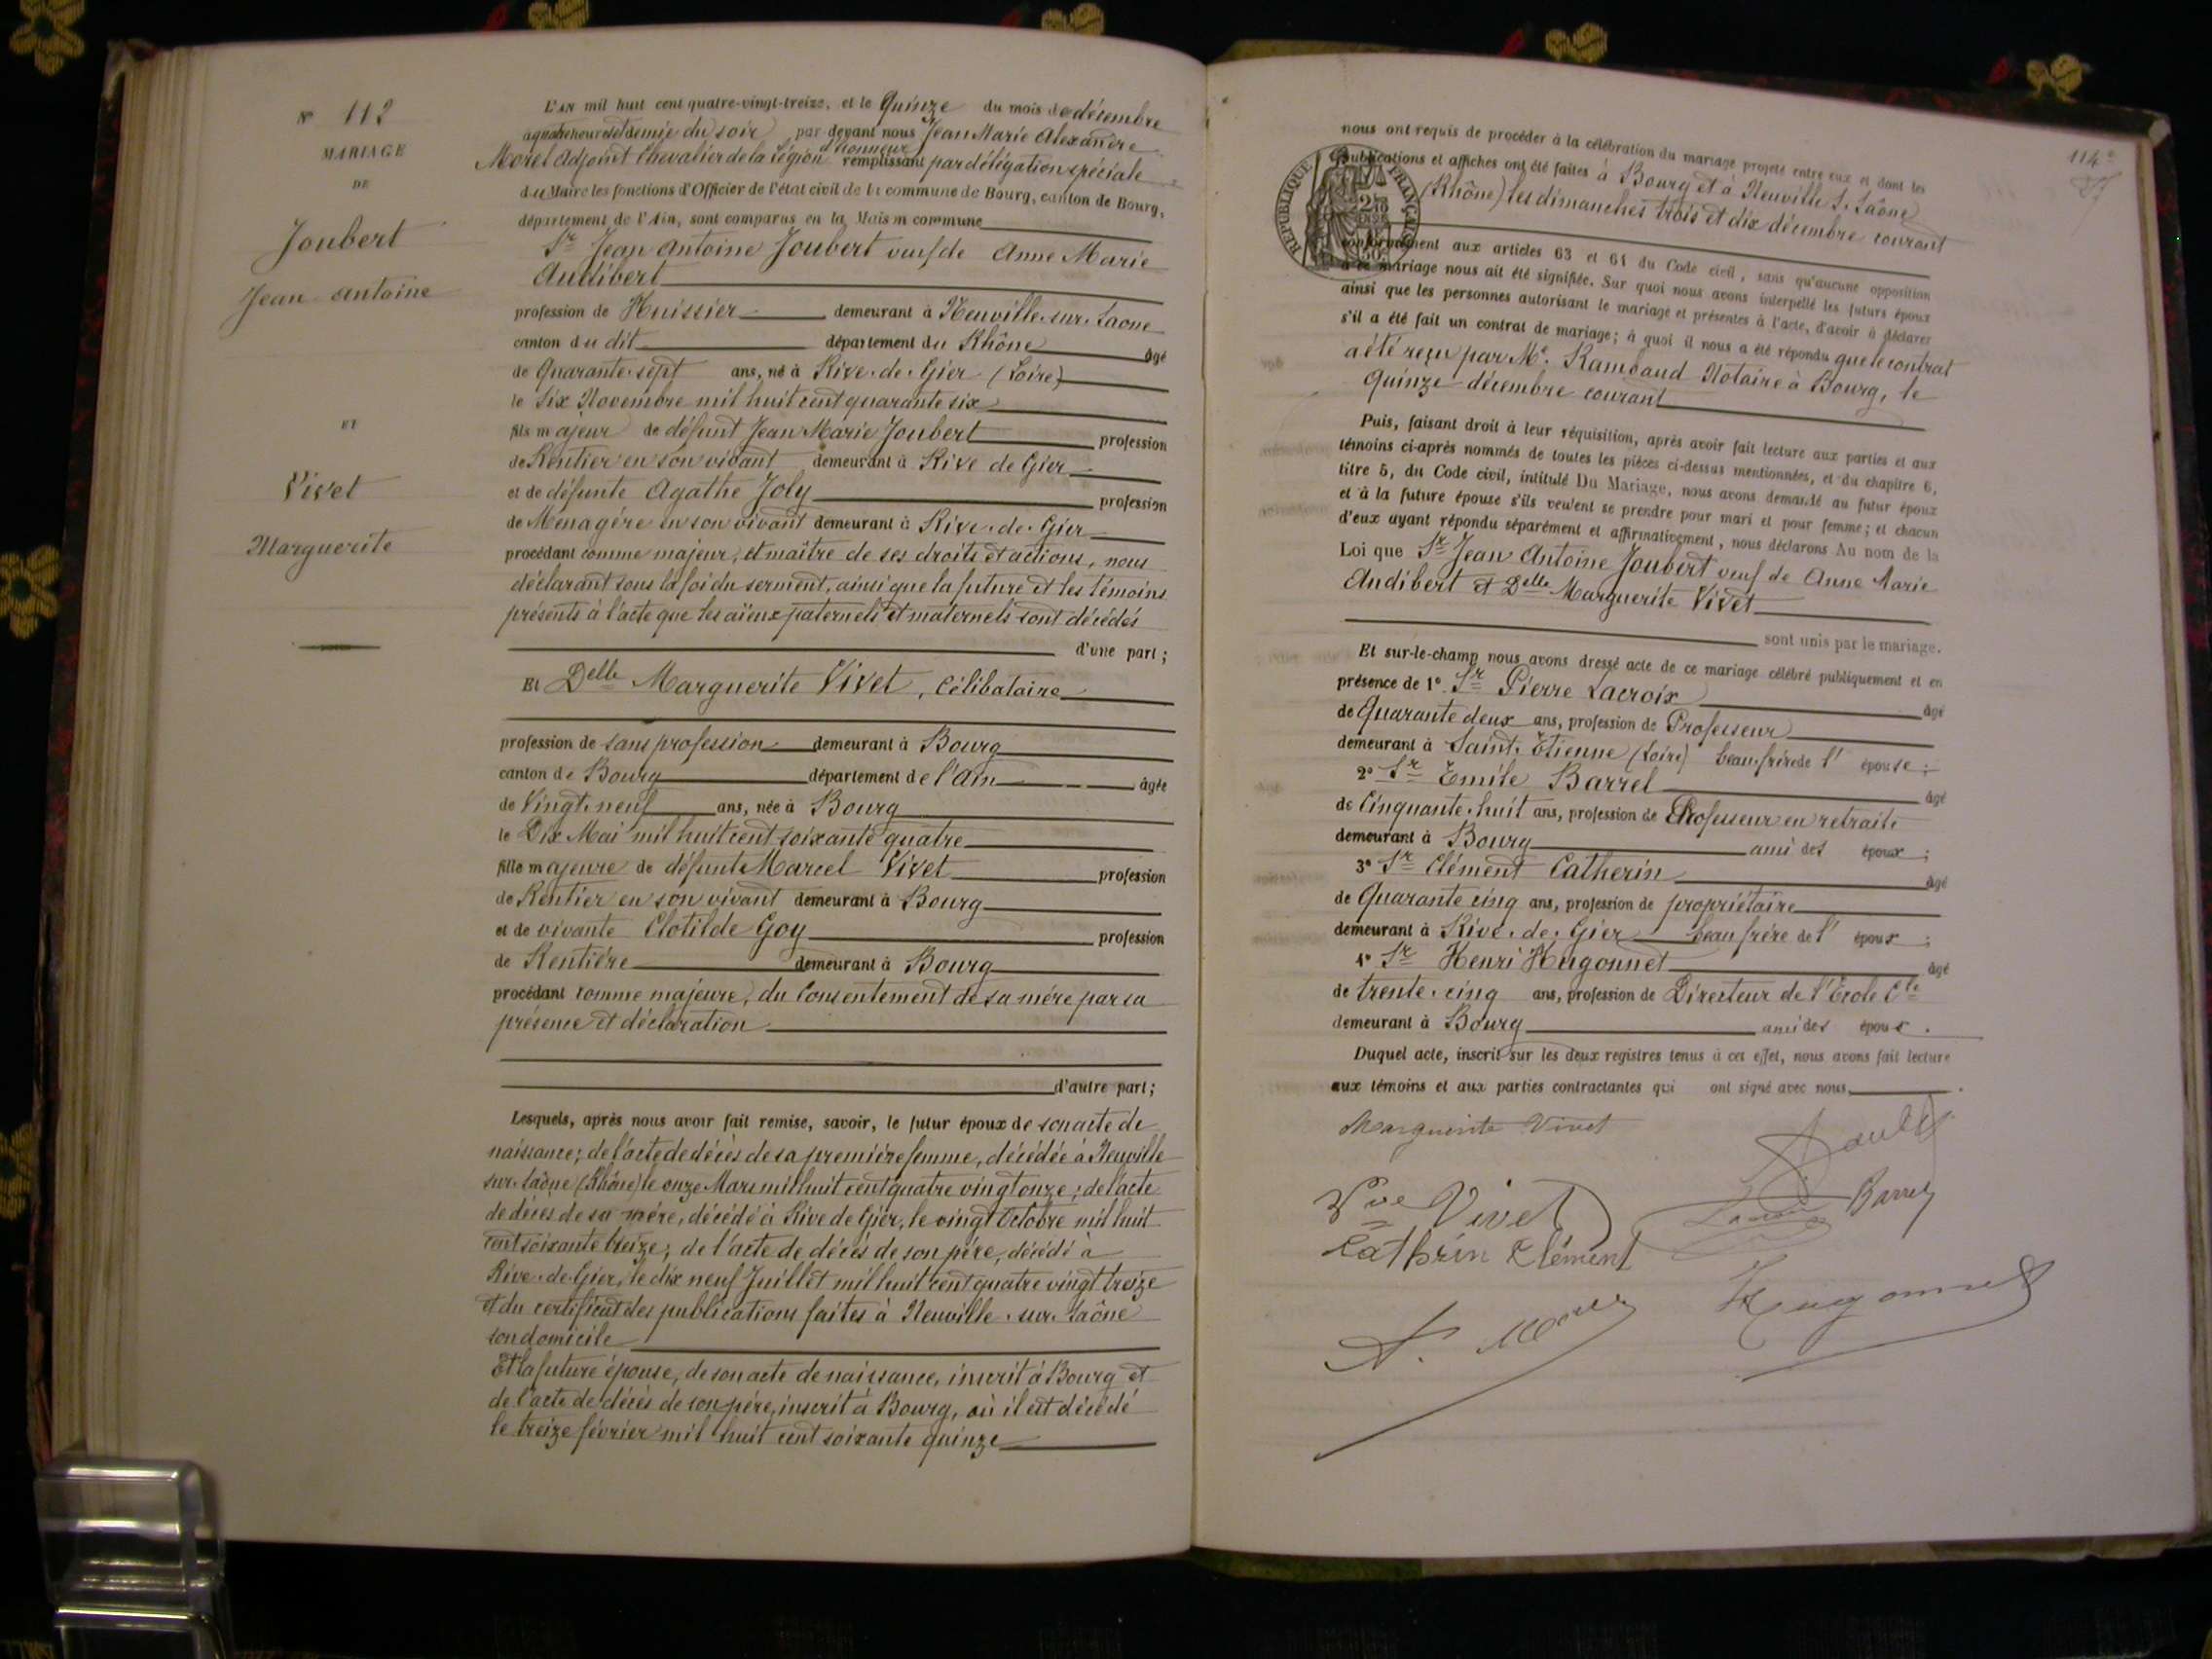 N° 112
MARIAGE
DE
Joubert
Jean Antoine
ET
Vivet
Marguerite
L'AN mil huit cent quatre-vingt-treize, et le Quinze du mois de décembre
à quatre heures et demie du soir par devant nous Jean Marie Alexandre
Morel Adjoint Chevalier de la Légion d'honneur remplissant par délégation spéciale
du Maire les fonctions d'Officier de l'état civil de la commune de Bourg, canton de Bourg,
département de l'Ain, sont comparus en la Maison commune
Sr Jean Antoine Joubert veuf de Anne Marie
Audibert
profession de Huissier demeurant à Neuville-sur-Saone
canton du dit département du Rhône âgé
de Quarante-sept ans, né à Rive-de-Gier (Loire)
le Six Novembre mil huit cent quarante six
fils majeur de défunt Jean Marie Joubert profession
de Rentier en son vivant demeurant à Rive de Gier
et de défunte Agathe Joly profession
de Ménagère en son vivant demeurant à Rive-de-Gier
procédant comme majeur, et maître de ses droits et actions, nous
déclarant sous la foi du serment, ainsi que la future et les témoins
présents à l'acte que les aïeux paternels et maternels sont décédés
d'une part;
Et Delle Marguerite Vivet, Célibataire
profession de sans profession demeurant à Bourg
canton de Bourg département de l'Ain âgée
de Vingt-neuf ans, née à Bourg
le Dix Mai mil huit cent soixante quatre
fille majeure de défunt Marcel Vivet profession
de Rentier en son vivant demeurant à Bourg
et de vivante Clotilde Goy profession
de Rentière demeurant à Bourg
procédant comme majeure, du Consentement de sa mère par sa
présence et déclaration
d'autre part;
Lesquels, après nous avoir fait remise, savoir, le futur époux de son acte de
naissance; de l'acte de décès de sa première femme, décédée à Neuville
sur-Saône (Rhône) le onze Mars mil huit cent quatre vingt onze; de l'acte
de décès de sa mère, décédé à Rive de Gier, le vingt Octobre mil huit
cent soixante treize; de l'acte de décès de son père, décédé à
Rive-de-Gier, le dix neuf Juillet mil huit cent quatre vingt treize
et du certificat des publications faites à Neuville-sur-Saône
son domicile
Et la future épouse, de son acte de naissance, inscrit à Bourg et
de l'acte de décès de son père, inscrit à Bourg, où il est décédé
le treize février mil huit cent soixante quinze
114e
nous ont requis de procéder à la célébration du mariage projeté entre eux et dont les
publications et affiches ont été faites à Bourg et à Neuville S. Saône
(Rhône) les dimanches trois et dix décembre courant
RÉPUBLIQUE FRANÇAISE
conformément aux articles 63 et 64 du Code civil, sans qu'aucune opposition
à ce mariage nous ait été signifiée. Sur quoi nous avons interpellé les futurs époux
ainsi que les personnes autorisant le mariage et présentes à l'acte, d'avoir à déclarer
s'il a été fait un contrat de mariage; à quoi il nous a été répondu que le contrat
a été reçu par Me. Rambaud Notaire à Bourg, le
quinze décembre courant
Puis, faisant droit à leur réquisition, après avoir fait lecture aux parties et aux
témoins ci-après nommés de toutes les pièces ci-dessus mentionnées, et du chapitre 6,
titre 5, du Code civil, intitulé Du Mariage, nous avons demandé au futur époux
et à la future épouse s'ils veulent se prendre pour mari et pour femme; et chacun
d'eux ayant répondu séparément et affirmativement, nous déclarons Au nom de la
Loi que Sr Jean Antoine Joubert veuf de Anne Marie
Audibert et Delle Marguerite Vivet
sont unis par le mariage.
Et sur-le-champ nous avons dressé acte de ce mariage célébré publiquement et en
présence de 1° Sr Pierre Lacroix âgé
de Quarante deux ans, profession de Professeur
demeurant à Saint-Etienne (Loire) beau-frère de l'épouse;
2° Sr Emile Barrel âgé
de Cinquante-huit ans, profession de Professeur en retraite
demeurant à Bourg ami des époux;
3° Sr Clément Catherin âgé
de Quarante cinq ans, profession de propriétaire
demeurant à Rive-de-Gier beau frère de l'époux;
4° Sr Henri Hugonnet âgé
de trente-cinq ans, profession de Directeur de l'Ecole Cle
demeurant à Bourg ami des époux.
Duquel acte, inscrit sur les deux registres tenus à cet effet, nous avons fait lecture
aux témoins et aux parties contractantes qui ont signé avec nous.
Marguerite Vivet
Joubert
Vve Vivet
Lacroix Barrel
Cathrin Clément
Hugonnet
A. Morel